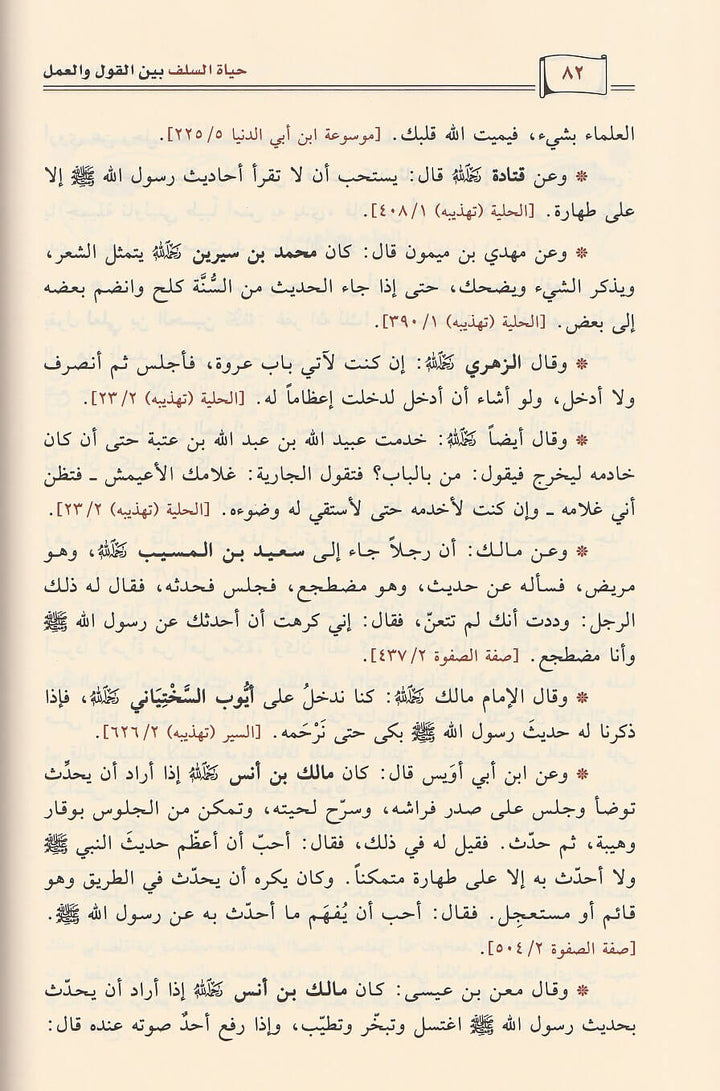 ٨٢
حياة السلف بين القول والعمل
العلماء بشيء، فيميت الله قلبك. [موسوعة ابن أبي الدنيا ٥/ ٢٢٥].
* وعن قتادة رَحِمَهُ اللَّهُ قال: يستحب أن لا تقرأ أحاديث رسول الله ﷺ إلا
على طهارة. [الحلية (تهذيبه) ١/ ٤٠٨].
* وعن مهدي بن ميمون قال: كان محمد بن سيرين رَحِمَهُ اللَّهُ يتمثل الشعر،
ويذكر الشيء ويضحك، حتى إذا جاء الحديث من السُّنَّة كلح وانضم بعضه
إلى بعض. [الحلية (تهذيبه) ١/ ٣٩٠].
* وقال الزهري رَحِمَهُ اللَّهُ: إن كنت لآتي باب عروة، فأجلس ثم أنصرف
ولا أدخل، ولو أشاء أن أدخل لدخلت إعظاماً له. [الحلية (تهذيبه) ٢/ ٢٣].
* وقال أيضاً رَحِمَهُ اللَّهُ: خدمت عبيد الله بن عبد الله بن عتبة حتى أن كان
خادمه ليخرج فيقول: من بالباب؟ فتقول الجارية: غلامك الأعيمش ـ فتظن
أني غلامه ـ وإن كنت لأخدمه حتى لأستقي له وضوءه. [الحلية (تهذيبه) ٢/ ٢٣].
* وعن مالك: أن رجلاً جاء إلى سعيد بن المسيب رَحِمَهُ اللَّهُ، وهو
مريض، فسأله عن حديث، وهو مضطجع، فجلس فحدثه، فقال له ذلك
الرجل: وددت أنك لم تتعنّ، فقال: إني كرهت أن أحدثك عن رسول الله ﷺ
وأنا مضطجع. [صفة الصفوة ٢/ ٤٣٧].
* وقال الإمام مالك رَحِمَهُ اللَّهُ: كنا ندخلُ على أيُّوب السَّخْتِيَاني رَحِمَهُ اللَّهُ، فإذا
ذكرنا له حديث رسول الله ﷺ بكى حتى نَرْحَمه. [السير (تهذيبه) ٢/ ٦٢٦].
* وعن ابن أبي أوَيس قال: كان مالك بن أنس رَحِمَهُ اللَّهُ إذا أراد أن يحدِّث
توضأ وجلس على صدر فراشه، وسرّح لحيته، وتمكن من الجلوس بوقار
وهيبة، ثم حدّث. فقيل له في ذلك، فقال: أحبّ أن أعظّم حديثَ النبي ﷺ
ولا أحدّث به إلا على طهارة متمكناً. وكان يكره أن يحدّث في الطريق وهو
قائم أو مستعجِل. فقال: أحب أن يُفهَم ما أحدّث به عن رسول الله ﷺ.
[صفة الصفوة ٢/ ٥٠٤].
* وقال معن بن عيسى: كان مالك بن أنس رَحِمَهُ اللَّهُ إذا أراد أن يحدّث
بحديث رسول الله ﷺ اغتسل وتبخّر وتطيّب، وإذا رفع أحدٌ صوته عنده قال: